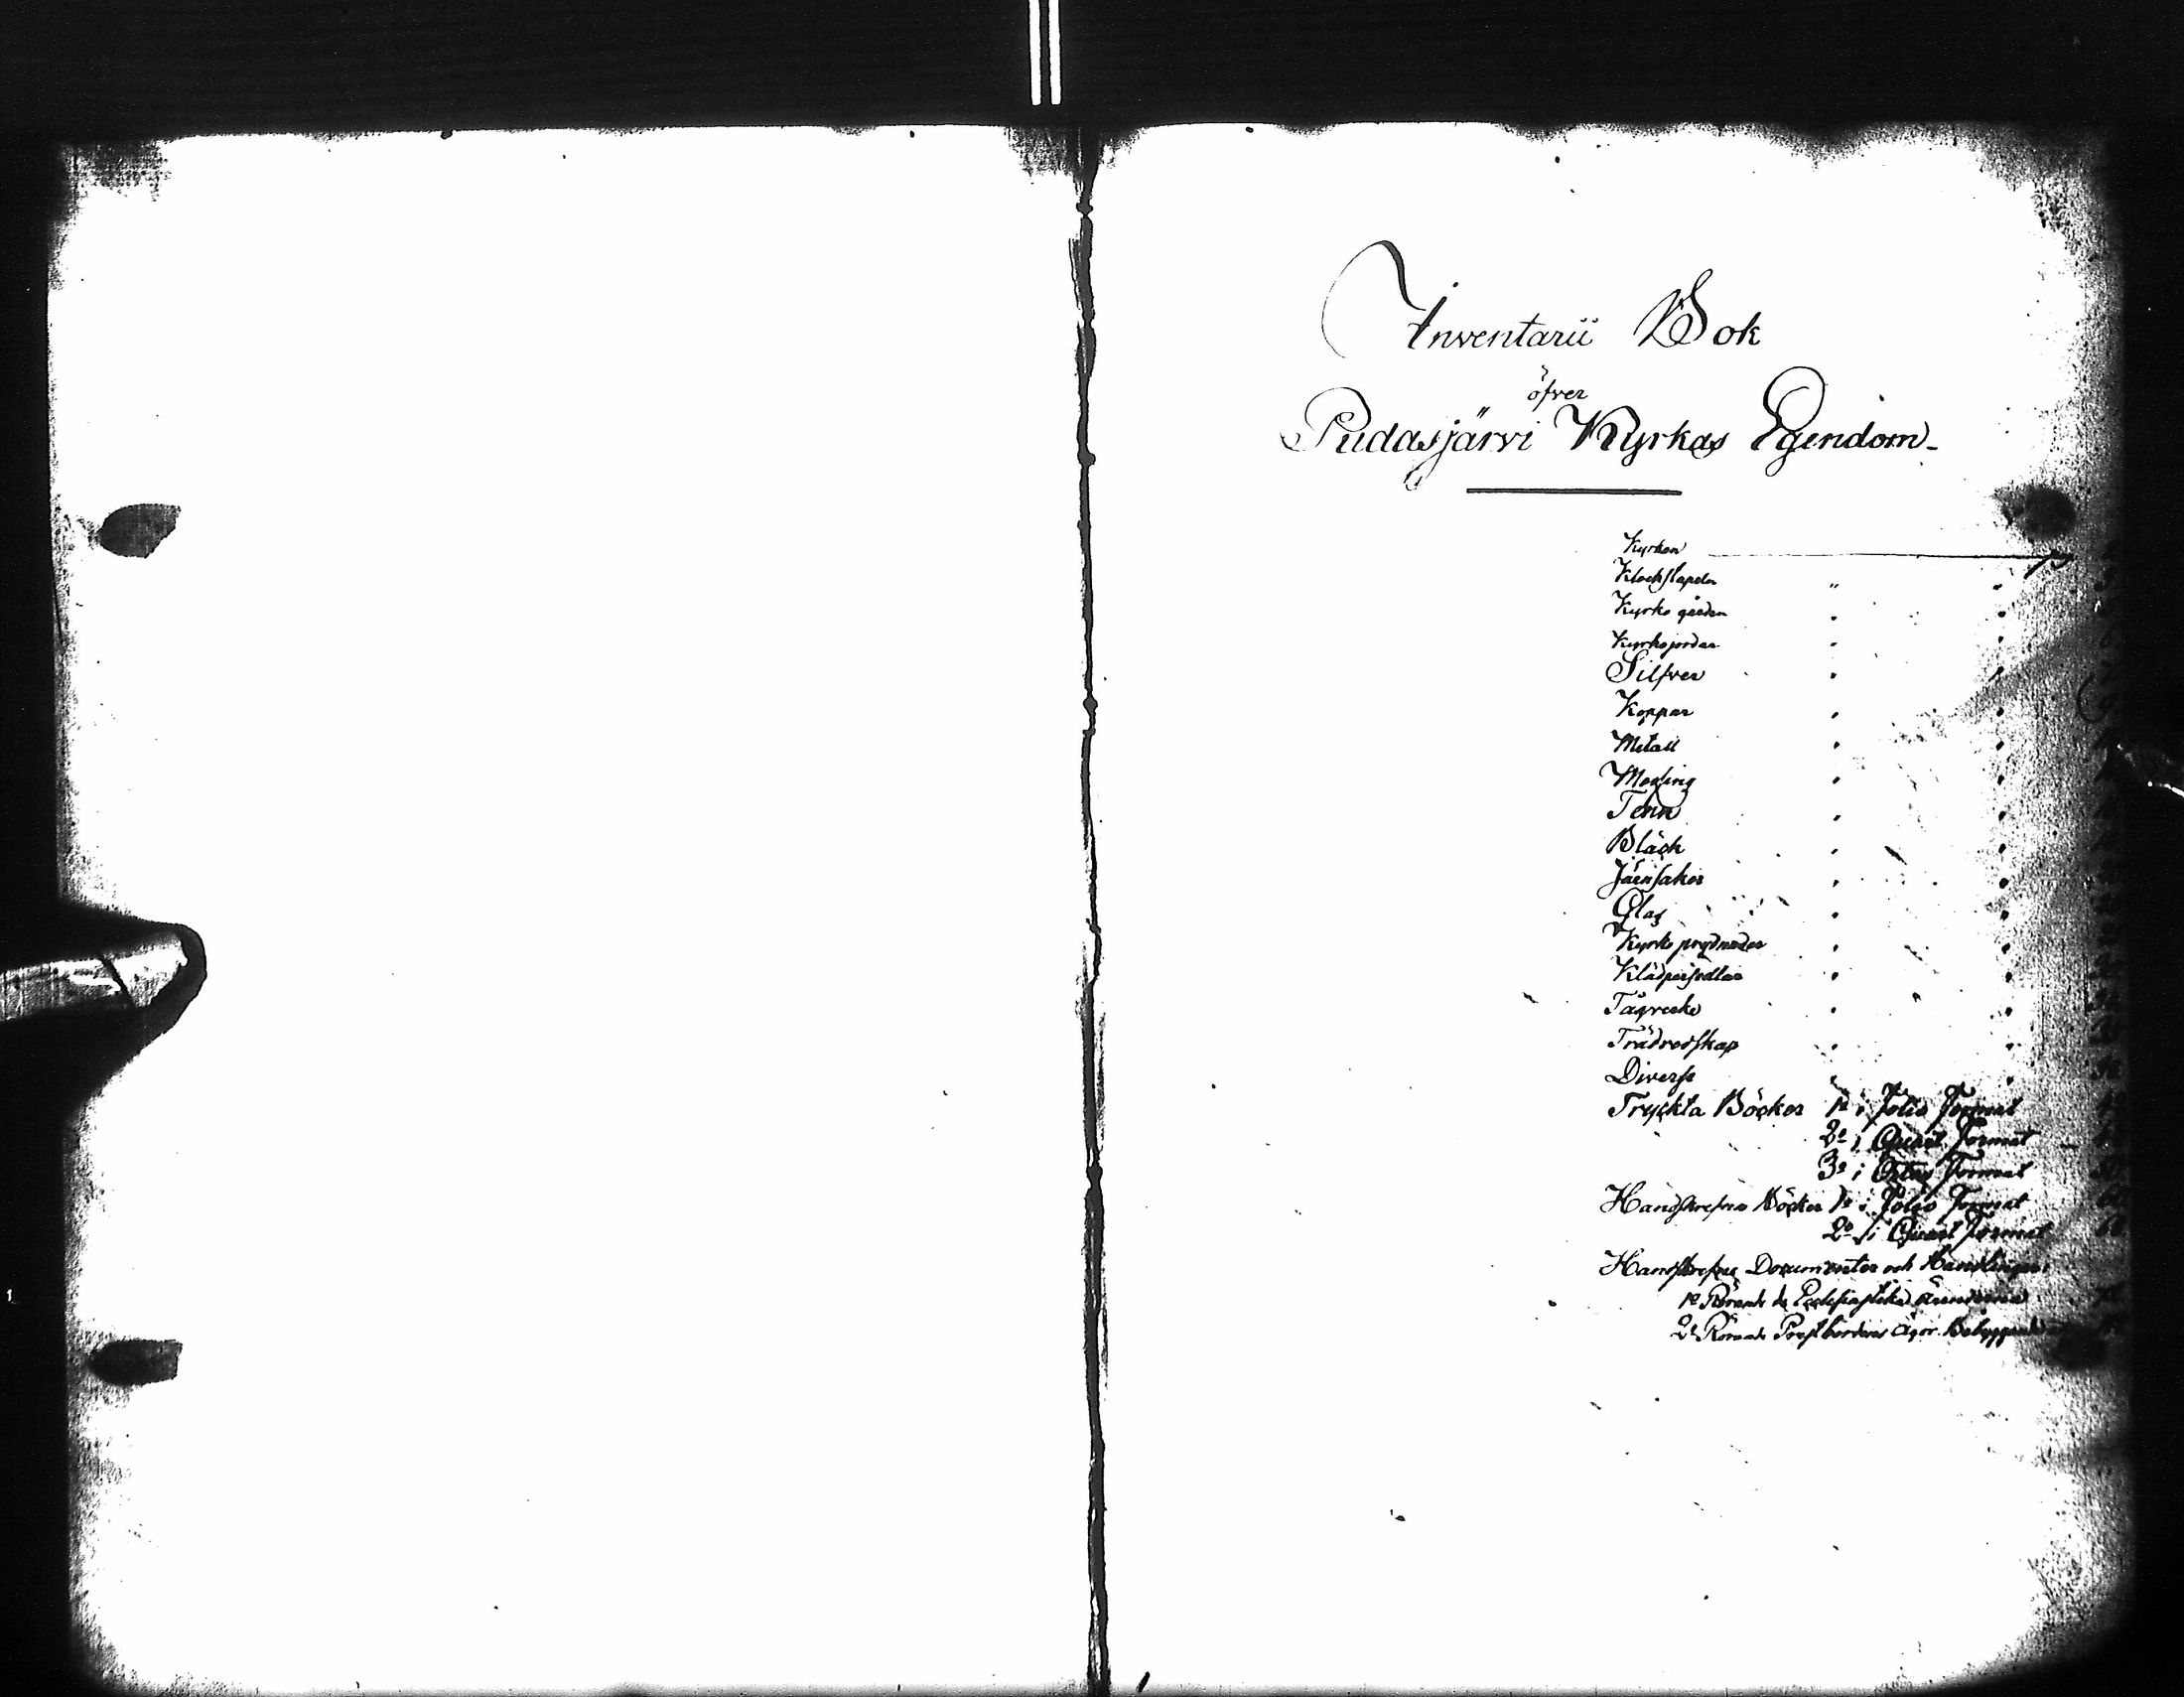 Inventarii Bok
öfver
Pudasjärvi Kyrkas Egendom.
Kyrkan
Klockstapeln " "
Kyrko gården " "
Kyrkojorden " "
Silfver " "
Koppar " "
Metall " "
Messing " "
Tenn " "
Bläck " "
Järnsaker " "
Glas " "
Kyrko prydnader " "
Klädpersedlar " "
Tågvirke " "
Trädredskap " "
Diverse " "
Tryckta Böcker 1o i Folio Format
2o i Quart Format
3o i Octav Format
Handskrefna Böcker 1o i Folio Format
2o i Quart Format
Handskrefna Documenter och Handlingar
1o Rörande de Ecclesiastika ärenderna
2o Rörande Prestbordens ägor